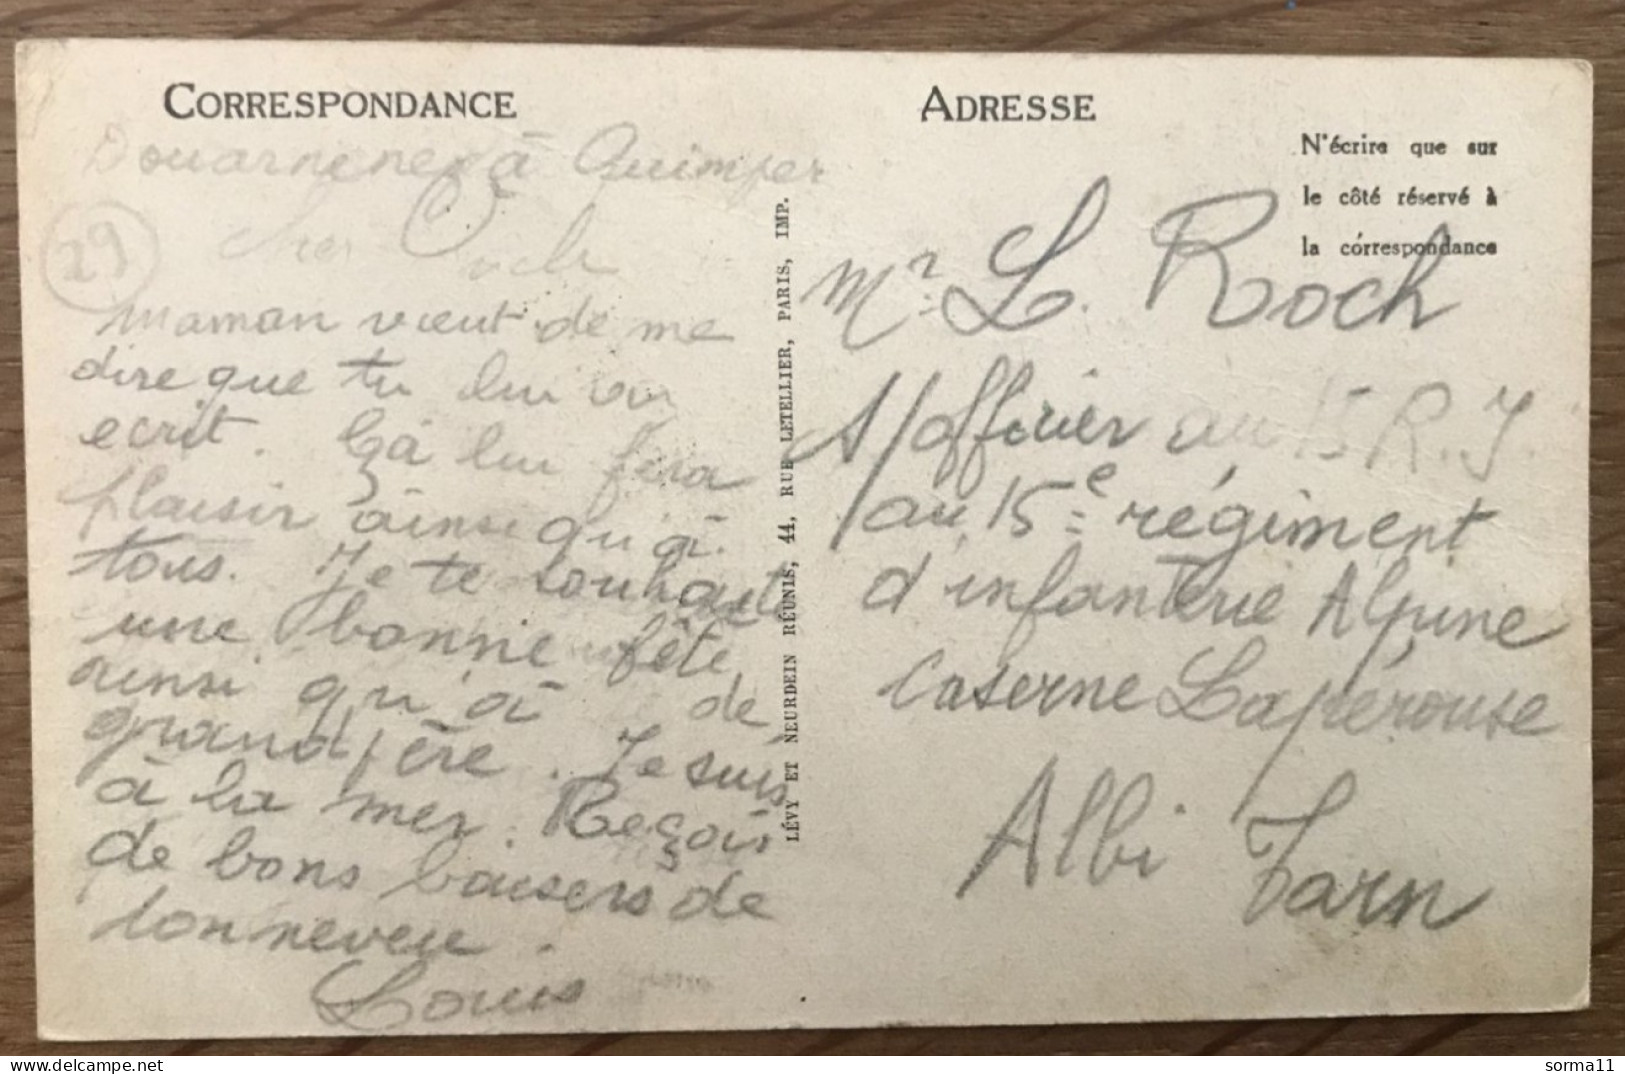 CORRESPONDANCE
Douarnenez à Quimper
29
cher Oncle
Maman vient de me
dire que tu lui
ecrit. Çà lui fera
plaisir ainsi qu'à
tous. Je te souhaite
une bonne fête
ainsi qu'à de
grand père. Je suis
à la mer. Reçois
de bons baisers de
ton neveu.
Louis
LÉVY ET NEURDEIN RÉUNIS, 44, RUE LETELLIER, PARIS, IMP.
ADRESSE
N'écrire que sur
le côté réservé à
la correspondance
Mr. L. Roch
officier au 15 R.I.
au 15e régiment
d'infanterie Alpine
Caserne Lapérouse
Albi Tarn
delcampe.net
sorma11